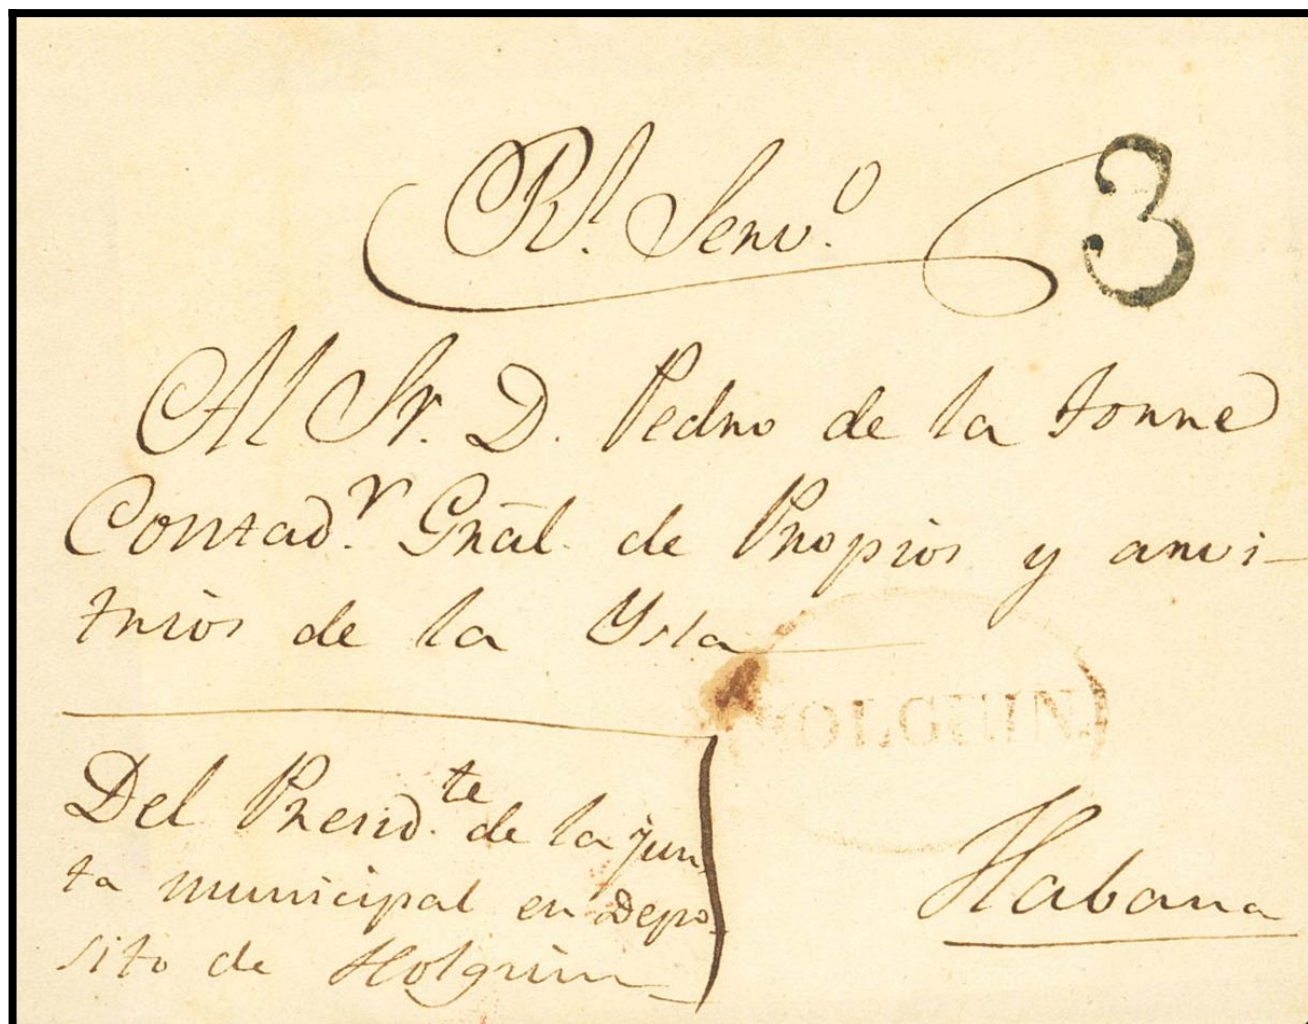 Rl. Servo.
3
Al Sr. D. Pedro de la torre
Contadr. Gñal. de Propios y arvi-
trios de la Ysla
HOLGUIN
Del Presidte. de la jun
ta municipal en Depo-
sito de Holguin
Habana